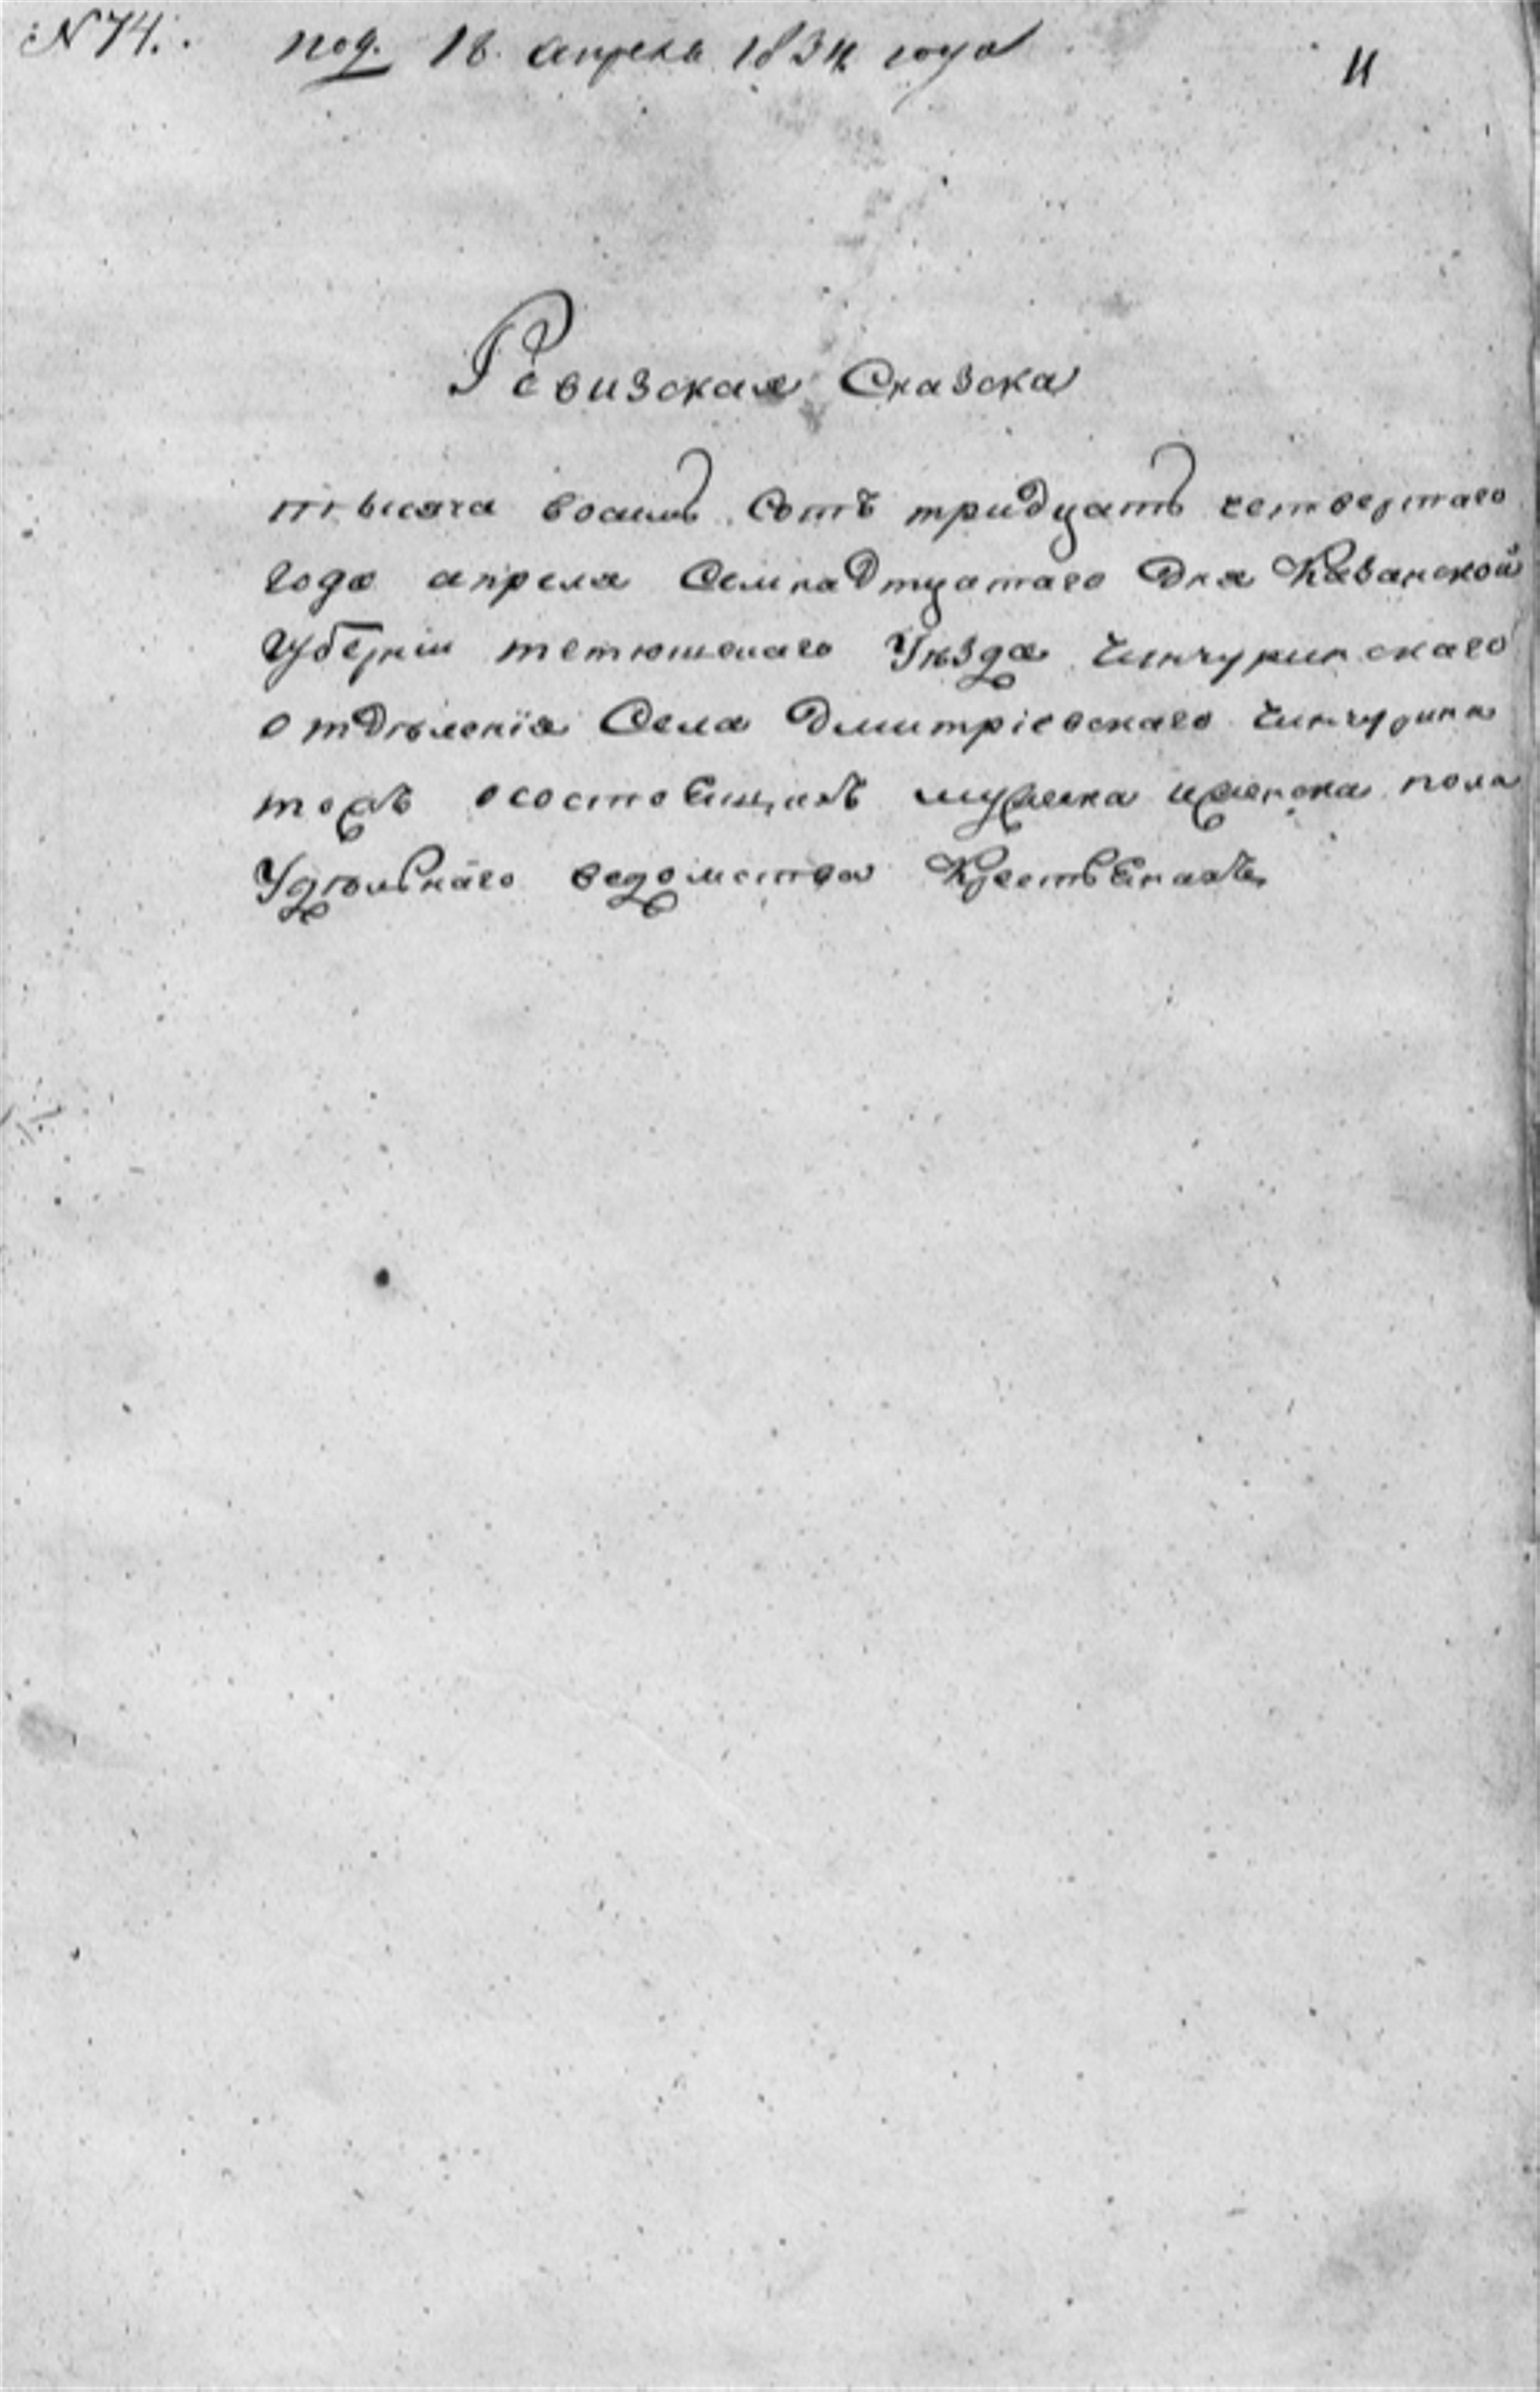 № 74.
под. 18. апреля 1834 года
11
Ревизская Сказска
тысяча восимь Сотъ тридцать четвертаго
года апреля Семнадтцатаго Дня Казанской
Губерніи тетюшскаго Уезда Чинчуринскаго
отделенія Села Дмитріевскаго Чинчурина
тожъ осостоящихъ мужска иженска пола
Удельнаго ведомства Крестьянахъ